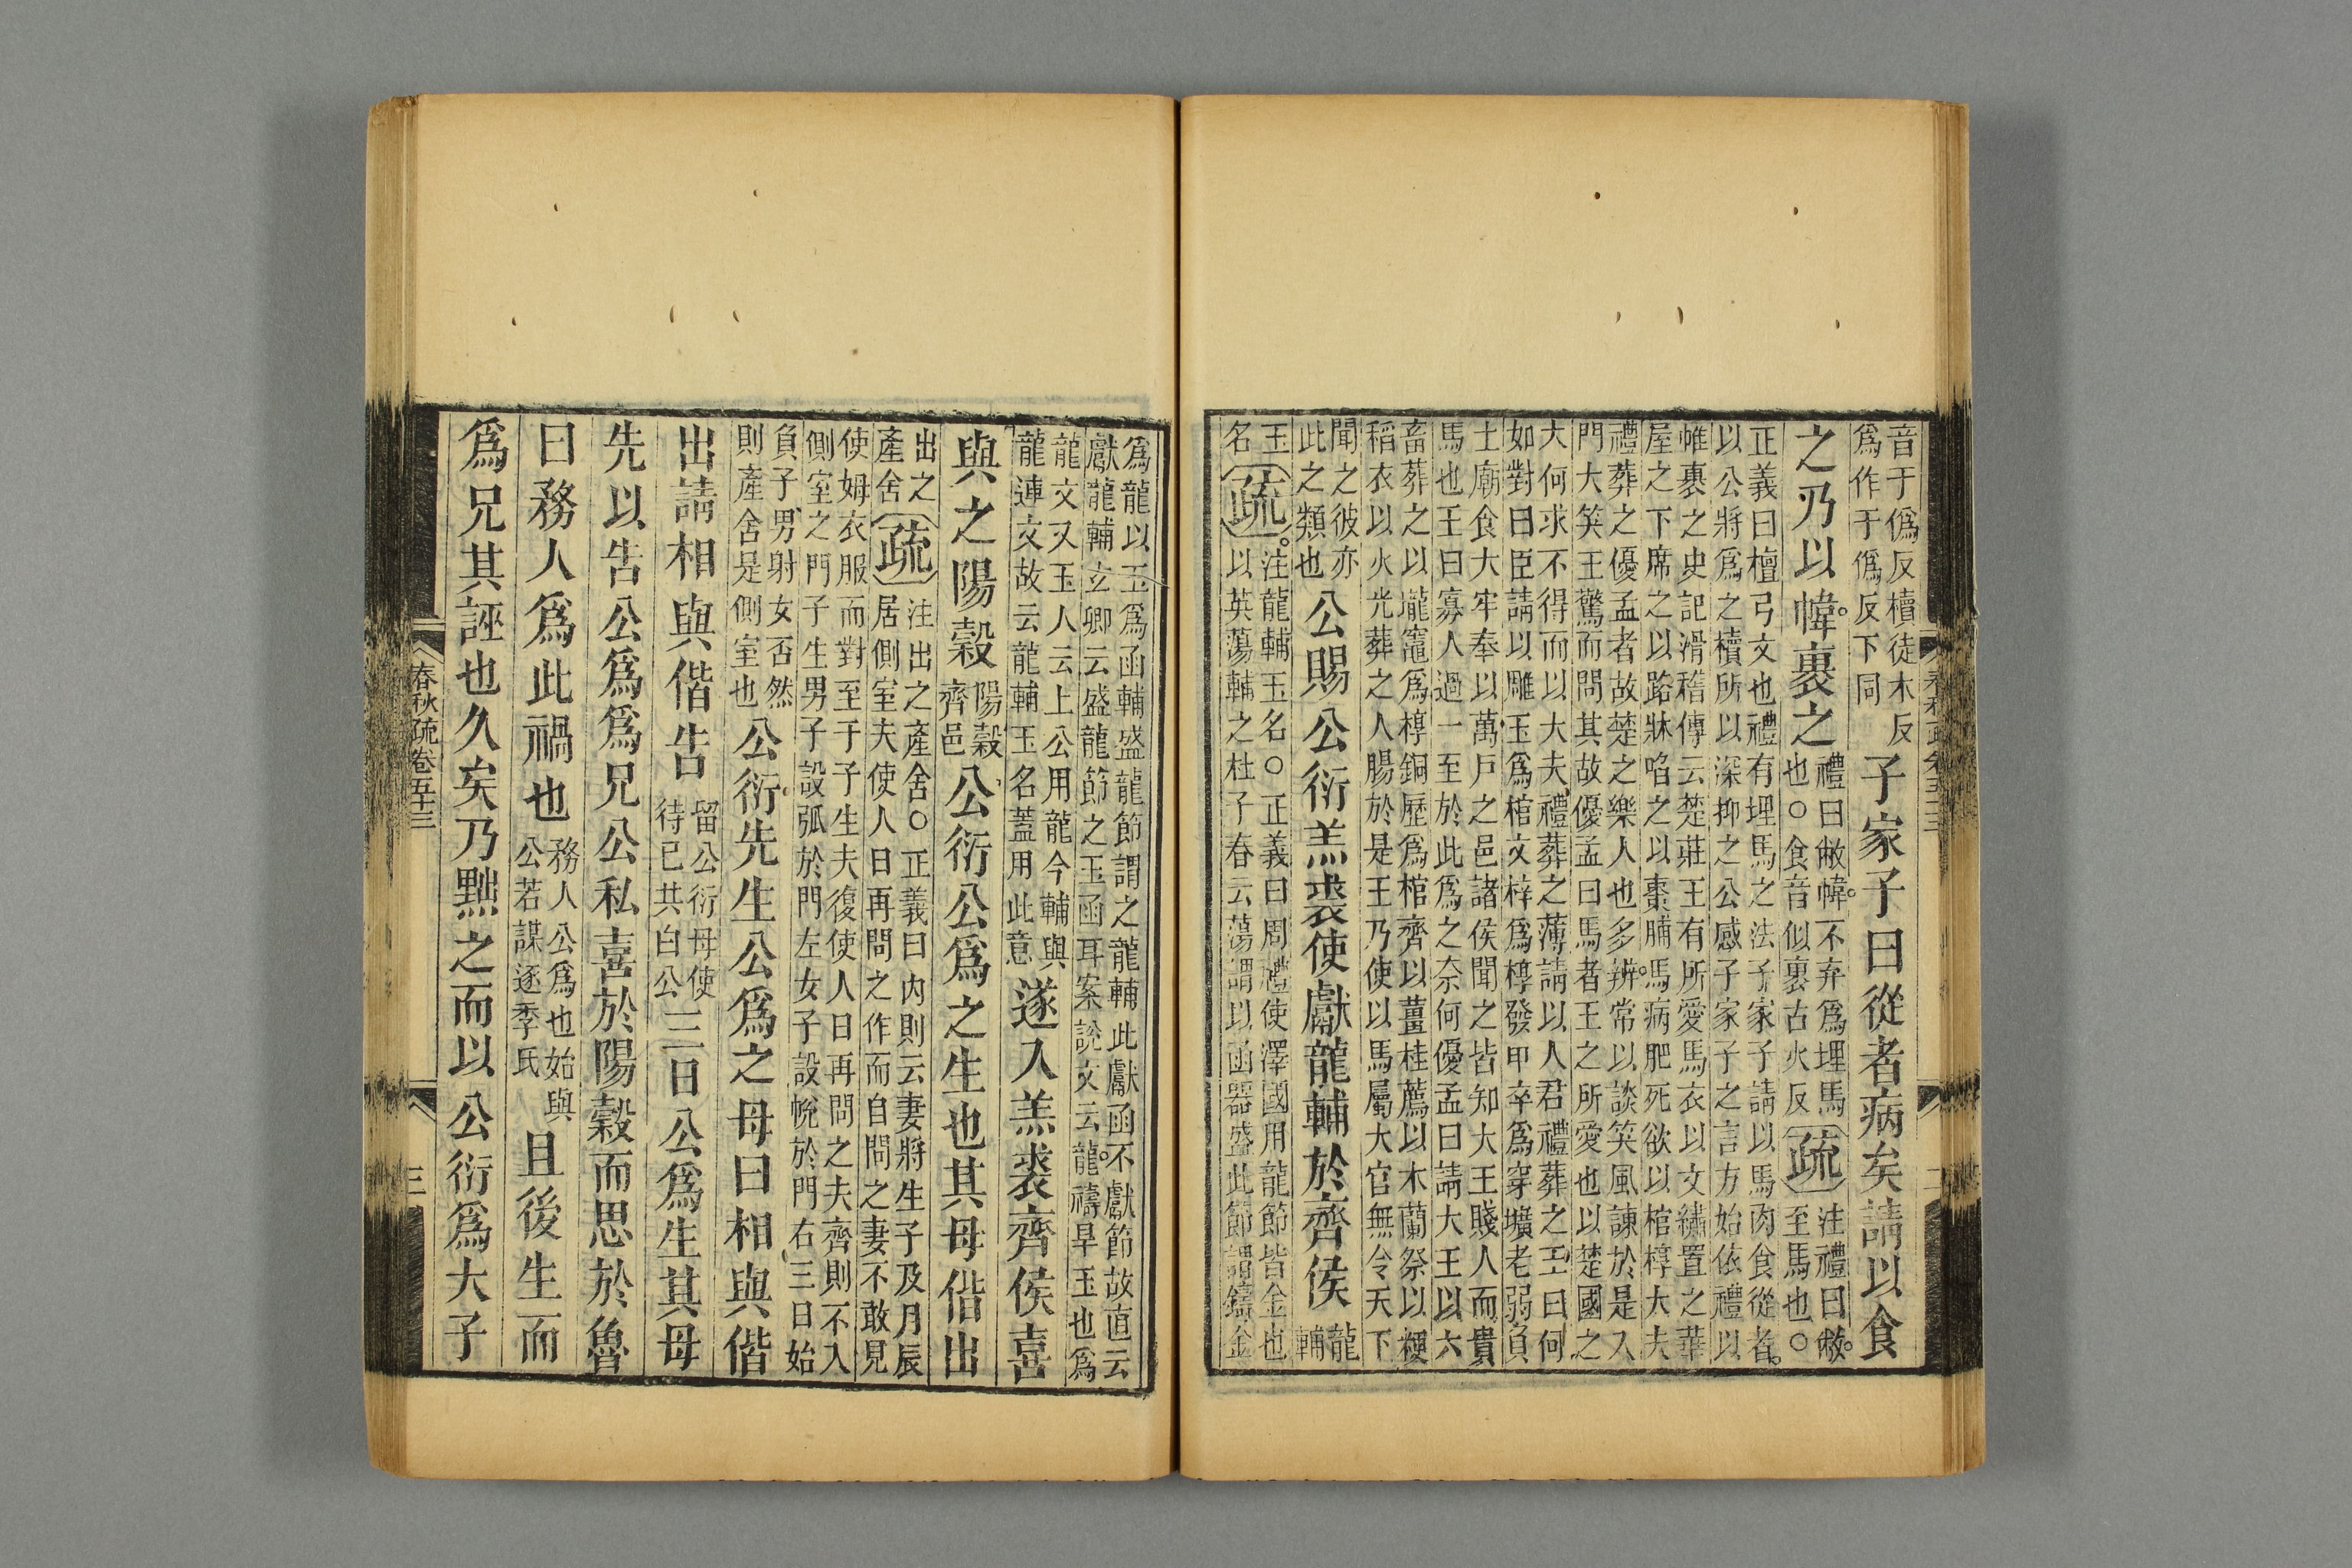 音于僞反櫝徒木反
爲作于僞反下同
子家子曰從者病矣請以食
之乃以幃裹之
禮曰敝幃不弃爲埋馬
也○食音似裹古火反
疏
注禮曰敝
至馬也○
正義曰檀弓文也禮有埋馬之法子家子請以馬肉食從者
以公將爲之櫝所以深抑之公感子家子之言方始依禮以
帷裹之史記滑稽傳云楚莊王有所愛馬衣以文繡置之華
屋之下席之以路牀啗之以棗脯馬病肥死欲以棺椁大夫
禮葬之優孟者故楚之樂人也多辨常以談笑風諫於是入
門大笑王驚而問其故優孟曰馬者王之所愛也以楚國之
大何求不得而以大夫禮葬之薄請以人君禮葬之王曰何
如對曰臣請以雕玉爲棺文梓爲椁發甲卒爲穿壙老弱負
土廟食大牢奉以萬戶之邑諸侯聞之皆知大王賤人而貴
馬也王曰寡人過一至於此爲之奈何優孟曰請大王以六
畜葬之以壠竈爲椁銅歷爲棺齊以薑桂薦以木蘭祭以稉
稻衣以火光葬之人腸於是王乃使以馬屬大官無令天下
聞之彼亦
此之類也
公賜公衍羔裘使獻龍輔於齊侯
龍
輔
玉
名
疏
注龍輔玉名○正義曰周禮使澤國用龍節皆金也
以英蕩輔之杜子春云蕩謂以函器盛此節謂鑄金
爲龍以玉爲函輔盛龍節謂之龍輔此獻函不獻節故直云
獻龍輔玄卿云盛龍節之玉函耳案說文云龍禱旱玉也爲
龍文又玉人云上公用龍今輔與
龍連文故云龍輔玉名蓋用此意
遂入羔裘齊侯喜
與之陽穀
陽穀
齊邑
公衍公爲之生也其母偕出
出之
產舍
疏
注出之產舍○正義曰內則云妻將生子及月辰
居側室夫使人日再問之作而自問之妻不敢見
使姆衣服而對至于子生夫復使人日再問之夫齊則不入
側室之門子生男子設弧於門左女子設帨於門右三日始
負子男射女否然
則產舍是側室也
公衍先生公爲之母曰相與偕
出請相與偕告
留公衍母使
待已共白公
三日公爲生其母
先以告公爲爲兄公私喜於陽穀而思於魯
曰務人爲此禍也
務人公爲也始與
公若謀逐季氏
且後生而
爲兄其誣也久矣乃黜之而以公衍爲大子
春秋疏卷五十三
三